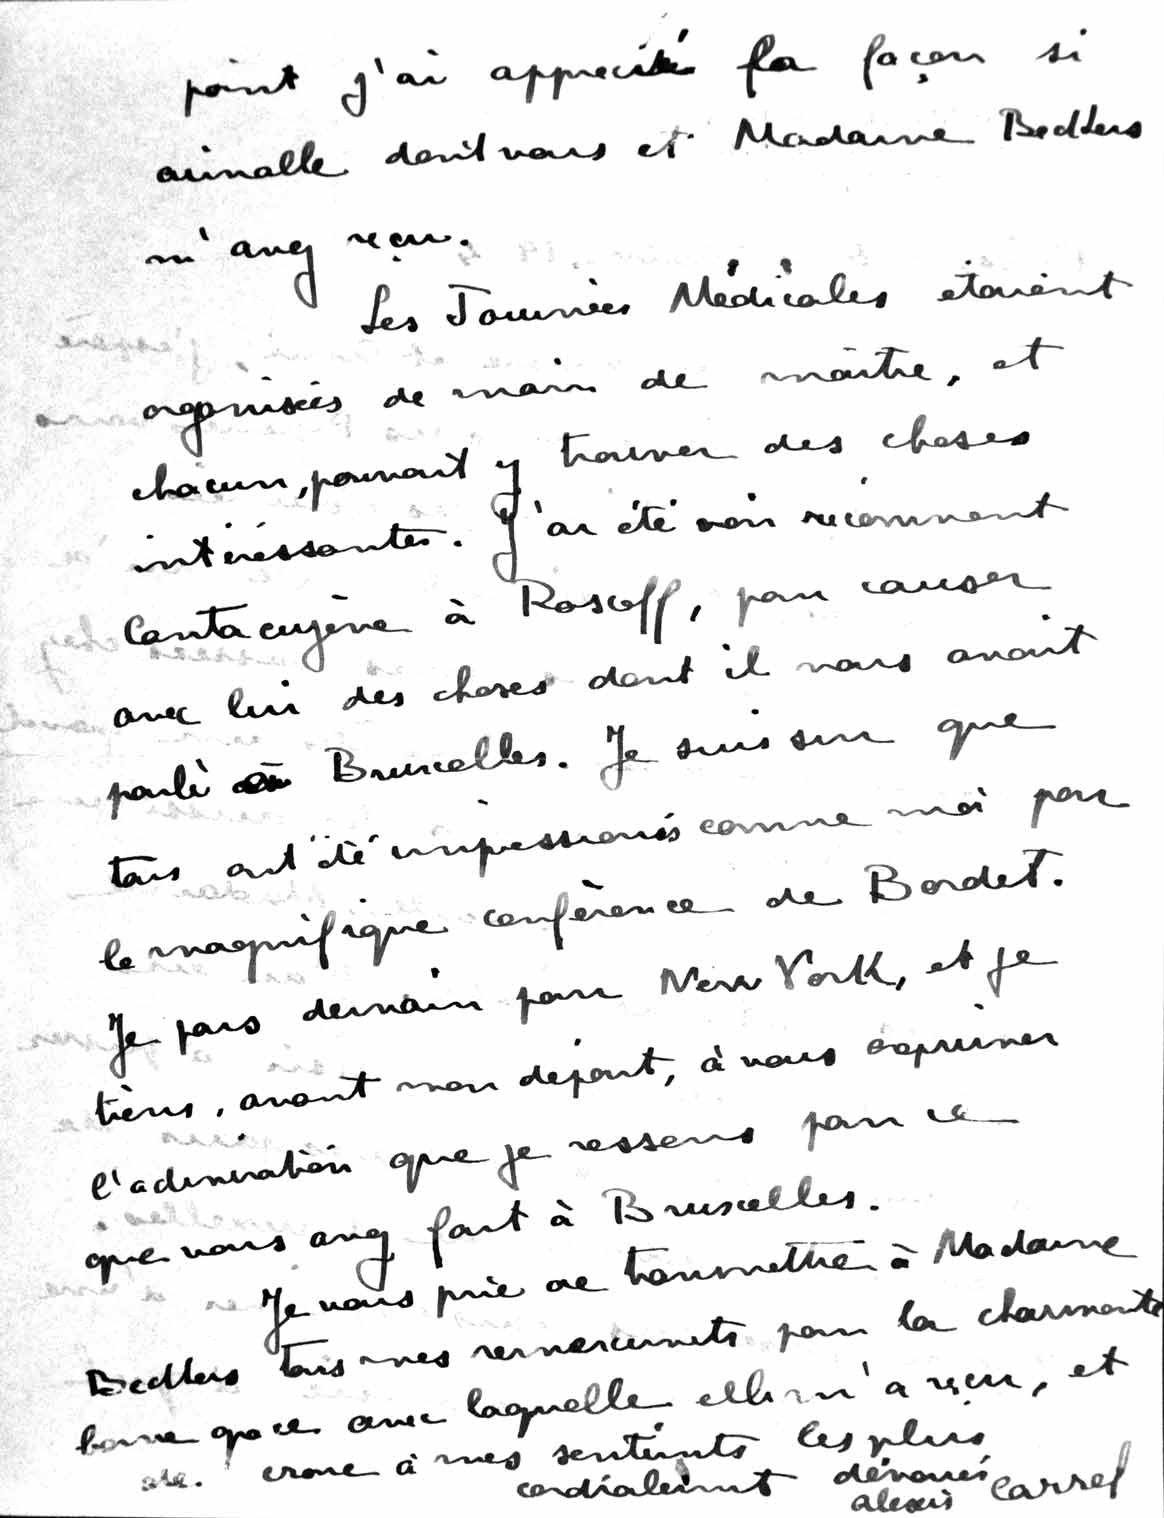 point j'ai apprécié la façon si
aimable dont vous et Madame Beckers
m'avez reçu.
Les Journées Médicales étaient
organisées de main de maître, et
chacun, pouvait y trouver des choses
intéressantes. J'ai été voir récemment
Cantacuzène à Roscoff, pour causer
avec lui des choses dont il nous avait
parlé à Bruxelles. Je suis sur que
tous ont été impressionés comme moi par
la magnifique conférence de Bordet.
Je pars demain pour New York, et je
tiens, avant mon départ, à vous exprimer
l'admiration que je ressens pour ce
que vous avez fait à Bruxelles.
Je vous prie de transmettre à Madame
Beckers tous mes remerciements pour la charmante
bonne grace avec laquelle elle m'a reçu, et
de. croire à mes sentiments les plus
cordialement dévoués
Alexis Carrel